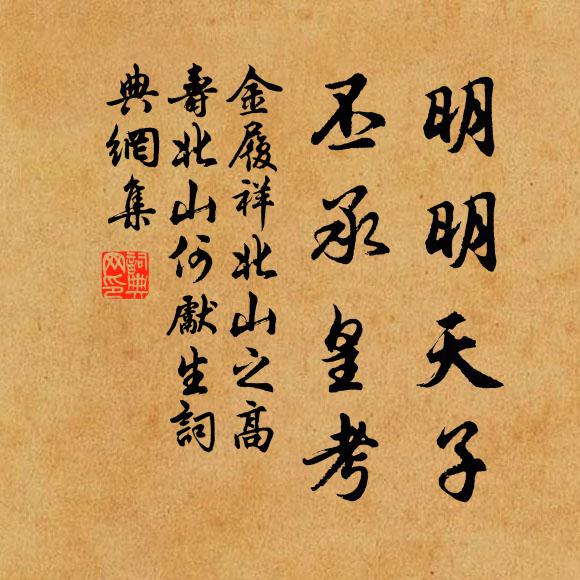 明明天子
丕承皇考
金履祥北山之高
壽北山何獻生詞
典網集
詞典網印